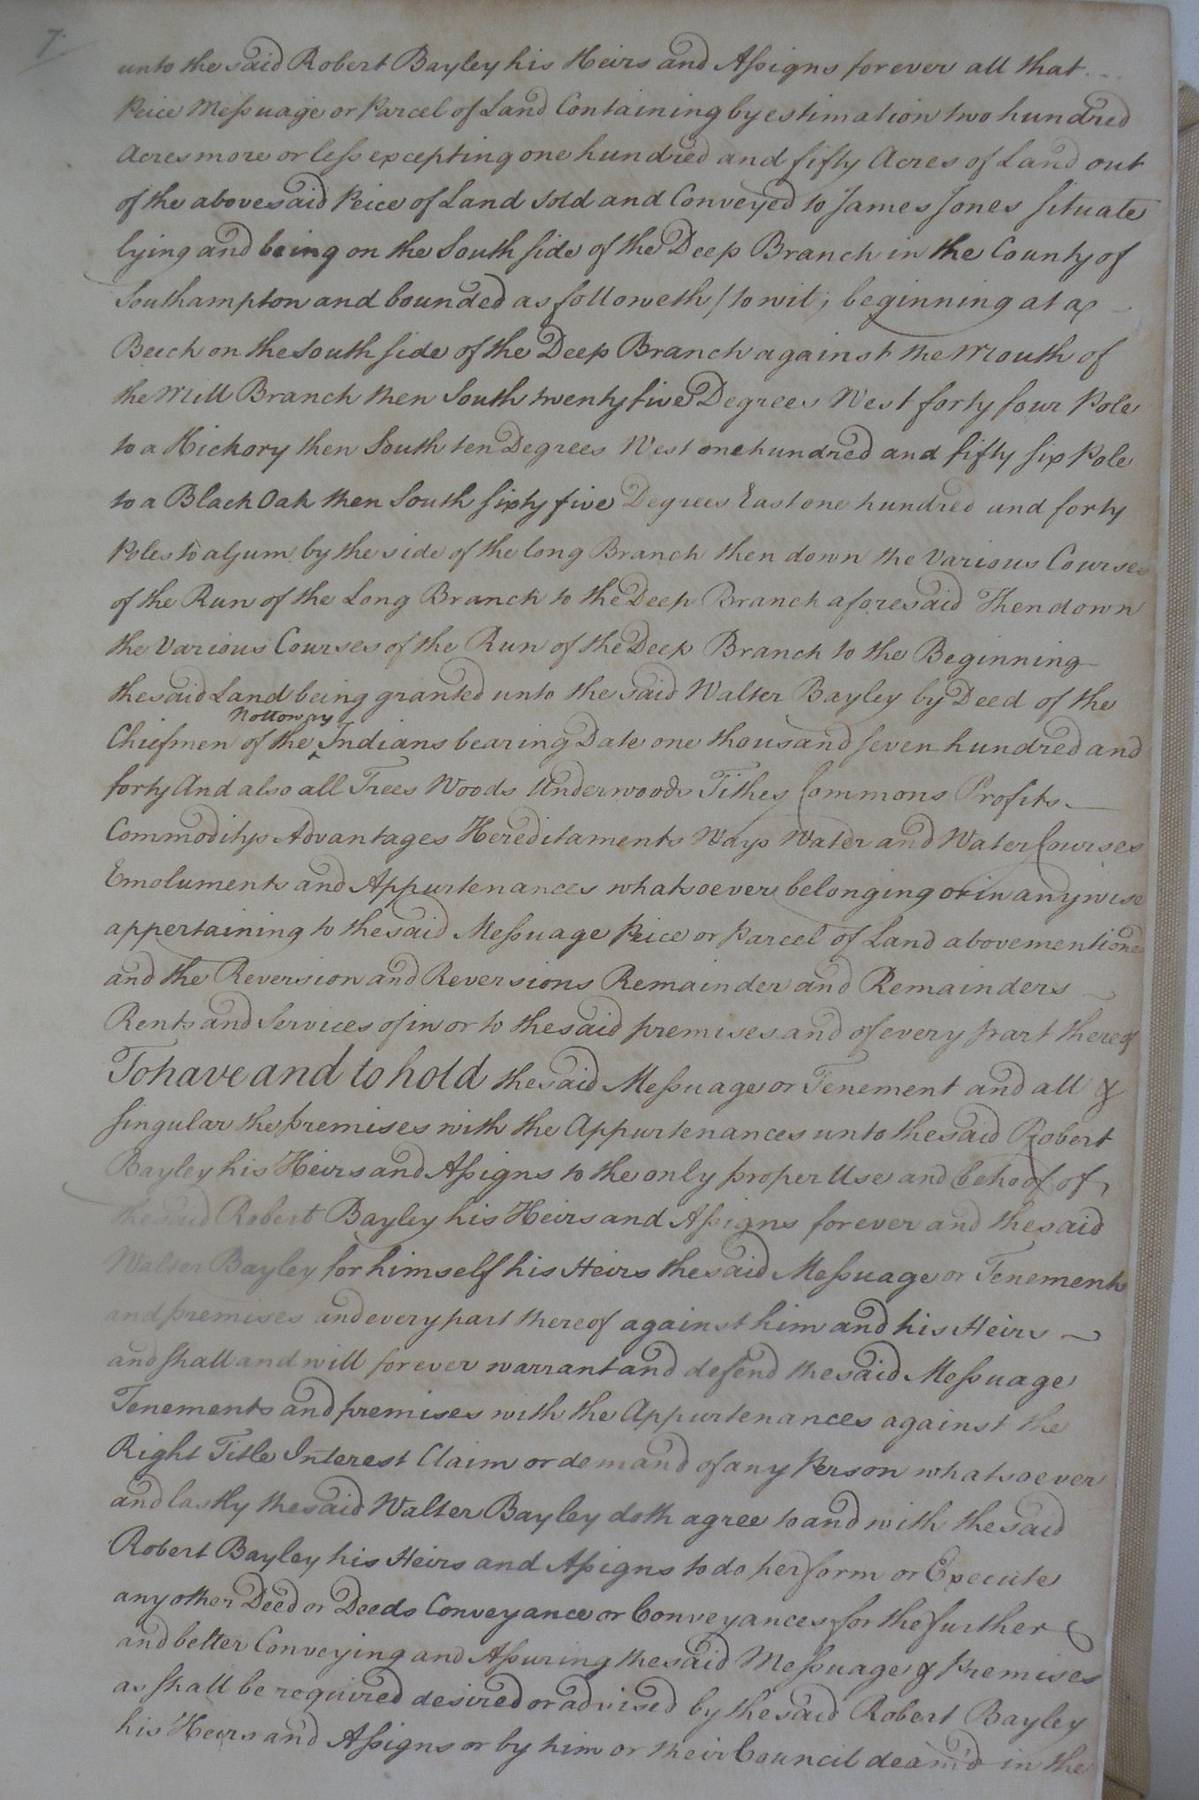 7.
unto the said Robert Bayley his Heirs and Assigns forever all that
Peice Messuage or Parcel of Land Containing by estimation two hundred
Acres more or less excepting one hundred and fifty Acres of Land out
of the abovesaid Peice of Land sold and Conveyed to James Jones situate
lying and being on the South side of the Deep Branch in the County of
Southampton and bounded as followeth /to wit; beginning at a
Beech on the South side of the Deep Branch against the Mouth of
the Mill Branch then South twenty five Degrees West forty four Pole
to a Hickory then South ten Degrees West one hundred and fifty six Pole
to a Black Oak then South sixty five Degrees East one hundred and forty
Poles to a Gum by the side of the long Branch then down the Various Courses
of the Run of the Long Branch to the Deep Branch aforesaid Then down
the Various Courses of the Run of the Deep Branch to the Beginning
the said Land being granted unto the said Walter Bayley by Deed of the
Nottoway
Chiefmen of the ‸ Indians bearing Date one thousand seven hundred and
forty And also all Trees Woods Underwoods Tithes Commons Profits
Commoditys Advantages Hereditaments Ways Water and Water Courses
Emoluments and Appurtenances whatsoever belonging or in anywise
appertaining to the said Messuage Peice or Parcel of Land abovementioned
and the Reversion and Reversions Remainder and Remainders
Rents and Services of in or to the said premises and of every part thereof
To have and to hold the said Messuage or Tenement and all &
singular the premises with the Appurtenances unto the said Robert
Bayley his Heirs and Assigns to the only proper Use and behoof of
the said Robert Bayley his Heirs and Assigns forever and the said
Walter Bayley for himself his Heirs the said Messuage or Tenements
and premises and every part thereof against him and his Heirs
and shall and will forever warrant and defend the said Messuage
Tenements and premises with the Appurtenances against the
Right Title Interest Claim or demand of any Person whatsoever
and lastly the said Walter Bayley doth agree to and with the said
Robert Bayley his Heirs and Assigns to do perform or Execute
any other Deed or Deeds Conveyance or Conveyances for the further
and better Conveying and Assuring the said Messuage & Premises
as shall be required desired or advised by the said Robert Bayley
his Heirs and Assigns or by him or their Council deam'd in the